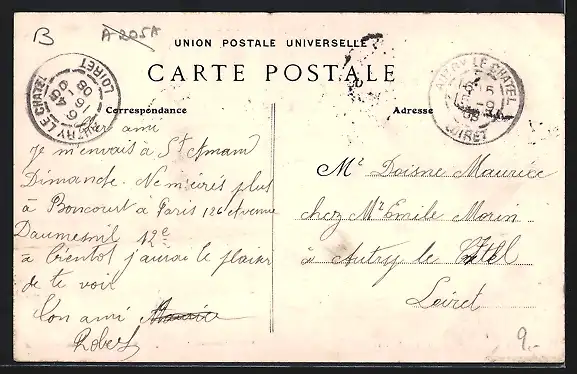 B A 205A
UNION POSTALE UNIVERSELLE
CARTE POSTALE
Correspondance
Adresse
AUTRY LE CHATEL
LOIRET
AUTRY LE CHATEL
LOIRET
Cher ami
Je m'envais à St Amand
Dimanche. Ne m'écris plus
à Boncourt à Paris 126 Avenue
Daumesnil 12e
à bientot j'aurai le plaisir
de te voir
Ton ami Maurice
Robert
Mr Doisne Maurice
chez Mr Emile Morin
à Autry le Chtel
Loiret
9.-